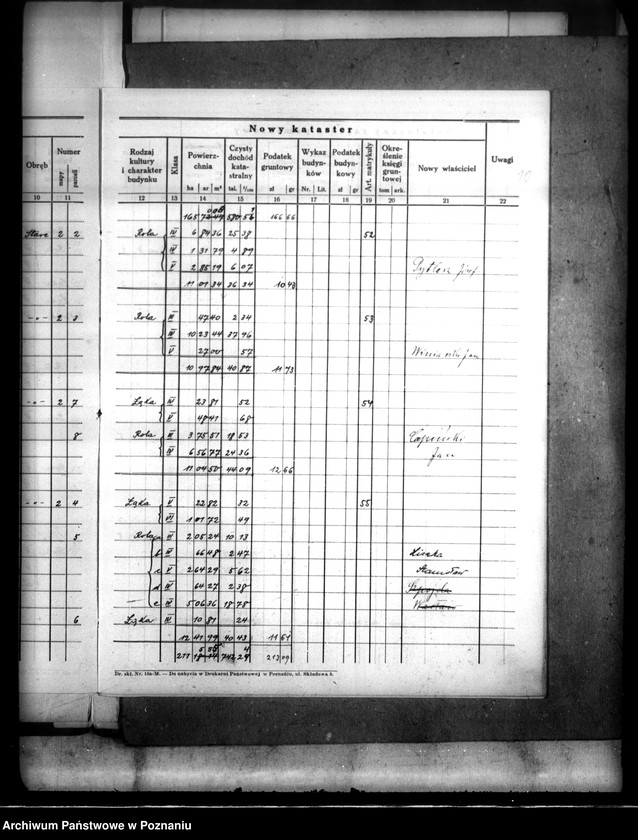 Nowy kataster
Obręb | Numer mapy | parceli | Rodzaj kultury i charakter budynku | Klasa | Powierzchnia ha ar m² | Czysty dochód katastralny tal. 1/100 | Podatek gruntowy zł gr | Wykaz budynków Nr. Lit. | Podatek budynkowy zł gr | Art. matrykuły | Określenie księgi gruntowej tom ark. | Nowy właściciel | Uwagi
10 11 12 13 14 15 16 17 18 19 20 21 22
166 66
2 2 Rola IV 6 84 36 25 38 52
IV 1 31 79 4 89
V 2 85 19 6 07
11 01 34 36 34 10 43
-"- 2 3 Rola III 47 40 2 34 53
III 10 23 44 37 96
V 27 00 57
10 97 84 40 87 11 73
-"- 2 7 Łąka IV 23 81 52 54
V 48 41 68
8 Rola III 3 75 51 18 53
IV 6 56 77 24 36 Jan
11 04 50 44 09 12 66
-"- 2 4 Łąka V 22 82 32 55
VI 1 01 72 49
5 Rola a III 2 05 24 10 13
b IV 66 48 2 47
c V 2 64 29 5 62 Stanisław
d IV 64 27 2 38
e IV 5 06 36 18 78
6 Łąka IV 10 81 24
12 41 99 40 43 11 61
213 09
Dr. skł. Nr. 15a-M. — Do nabycia w Drukarni Państwowej w Poznaniu, ul. Składowa 4.
Archiwum Państwowe w Poznaniu